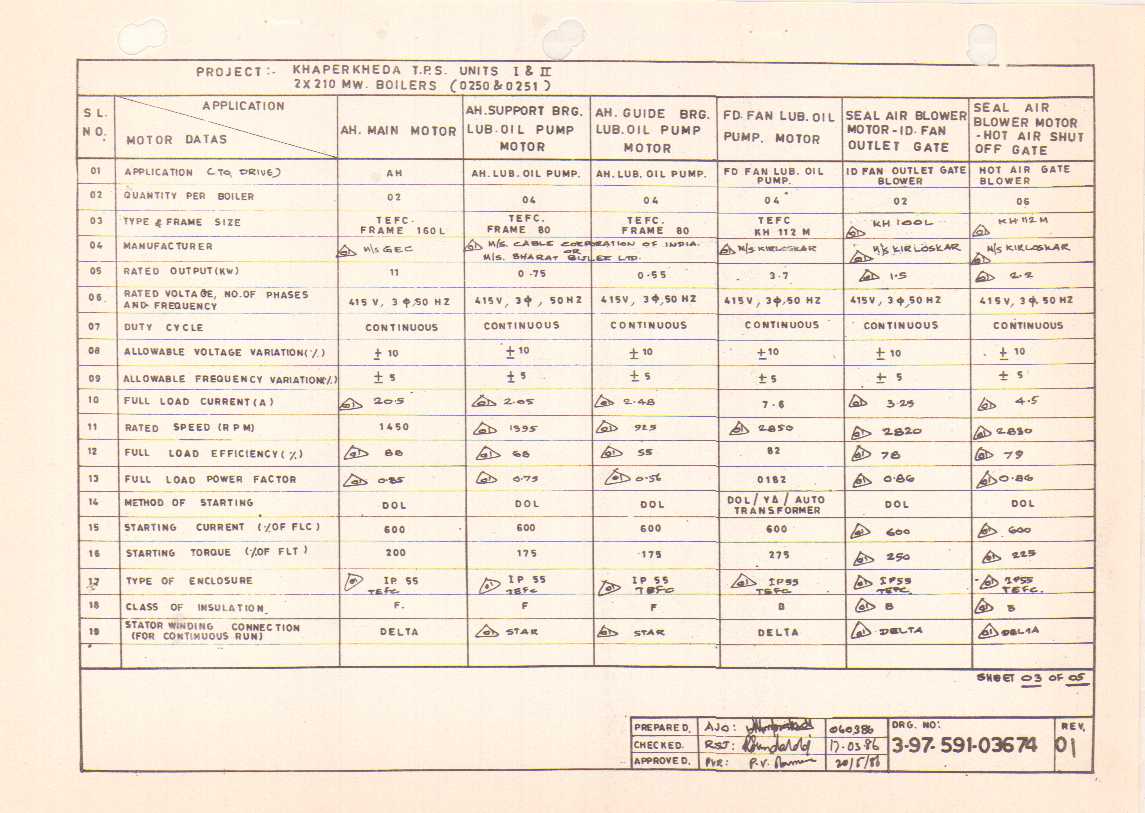 PROJECT:- KHAPERKHEDA T.P.S. UNITS I & II
2X210 MW. BOILERS (0250&0251)
SL. NO. APPLICATION MOTOR DATAS AH. MAIN MOTOR AH.SUPPORT BRG. LUB.OIL PUMP MOTOR AH. GUIDE BRG. LUB.OIL PUMP MOTOR FD.FAN LUB.OIL PUMP. MOTOR SEAL AIR BLOWER MOTOR-ID.FAN OUTLET GATE SEAL AIR BLOWER MOTOR -HOT AIR SHUT OFF GATE
01 APPLICATION (TO DRIVE) AH AH.LUB.OIL PUMP. AH.LUB.OIL PUMP. FD FAN LUB. OIL PUMP. ID FAN OUTLET GATE BLOWER HOT AIR GATE BLOWER
02 QUANTITY PER BOILER 02 04 04 04 02 06
03 TYPE & FRAME SIZE TEFC. FRAME 160L TEFC. FRAME 80 TEFC. FRAME 80 TEFC KH 112 M 01 KH 100L 01 KH 112 M
04 MANUFACTURER 01 M/S GEC 01 M/S. CABLE CORPORATION OF INDIA. OR M/S. BHARAT BIJLEE LTD. 01 M/S KIRLOSKAR 01 M/S KIRLOSKAR 01 M/S KIRLOSKAR
05 RATED OUTPUT(KW) 11 0.75 0.55 3.7 01 1.5 01 2.2
06 RATED VOLTAGE, NO.OF PHASES AND FREQUENCY 415 V, 3 ϕ,50 HZ 415V, 3ϕ, 50HZ 415V, 3ϕ,50 HZ 415V, 3ϕ,50 HZ 415V, 3ϕ,50 HZ 415V, 3ϕ, 50 HZ
07 DUTY CYCLE CONTINUOUS CONTINUOUS CONTINUOUS CONTINUOUS CONTINUOUS CONTINUOUS
08 ALLOWABLE VOLTAGE VARIATION(%) ± 10 ± 10 ± 10 ±10 ± 10 ± 10
09 ALLOWABLE FREQUENCY VARIATION(%) ± 5 ± 5 ± 5 ±5 ± 5 ± 5
10 FULL LOAD CURRENT(A) 01 20.5 01 2.05 01 2.48 7.6 01 3.25 01 4.5
11 RATED SPEED (RPM) 1450 01 1395 01 925 01 2850 01 2820 01 2830
12 FULL LOAD EFFICIENCY(%) 01 88 01 68 01 55 82 01 78 01 79
13 FULL LOAD POWER FACTOR 01 0.85 01 0.75 01 0.56 0182 01 0.86 01 0.86
14 METHOD OF STARTING DOL DOL DOL DOL/YΔ/AUTO TRANSFORMER DOL DOL
15 STARTING CURRENT (%OF FLC) 600 600 600 600 01 600 01 600
16 STARTING TORQUE (%OF FLT) 200 175 175 275 01 250 01 225
17 TYPE OF ENCLOSURE 01 IP 55 TEFC 01 IP 55 TEFC 01 IP 55 TEFC 01 IP55 TEFC 01 IP55 TEFC. 01 IP55 TEFC.
18 CLASS OF INSULATION F. F F B 01 B 01 B
19 STATOR WINDING CONNECTION (FOR CONTINUOUS RUN) DELTA 01 STAR 01 STAR DELTA 01 DELTA 01 DELTA
SHEET 03 OF 05
PREPARED. AJO: 060386 DRG. NO: REV.
CHECKED. RSJ: 17-03-86 3-97-591-03674 01
APPROVED. PVR: P.V. 20/5/86